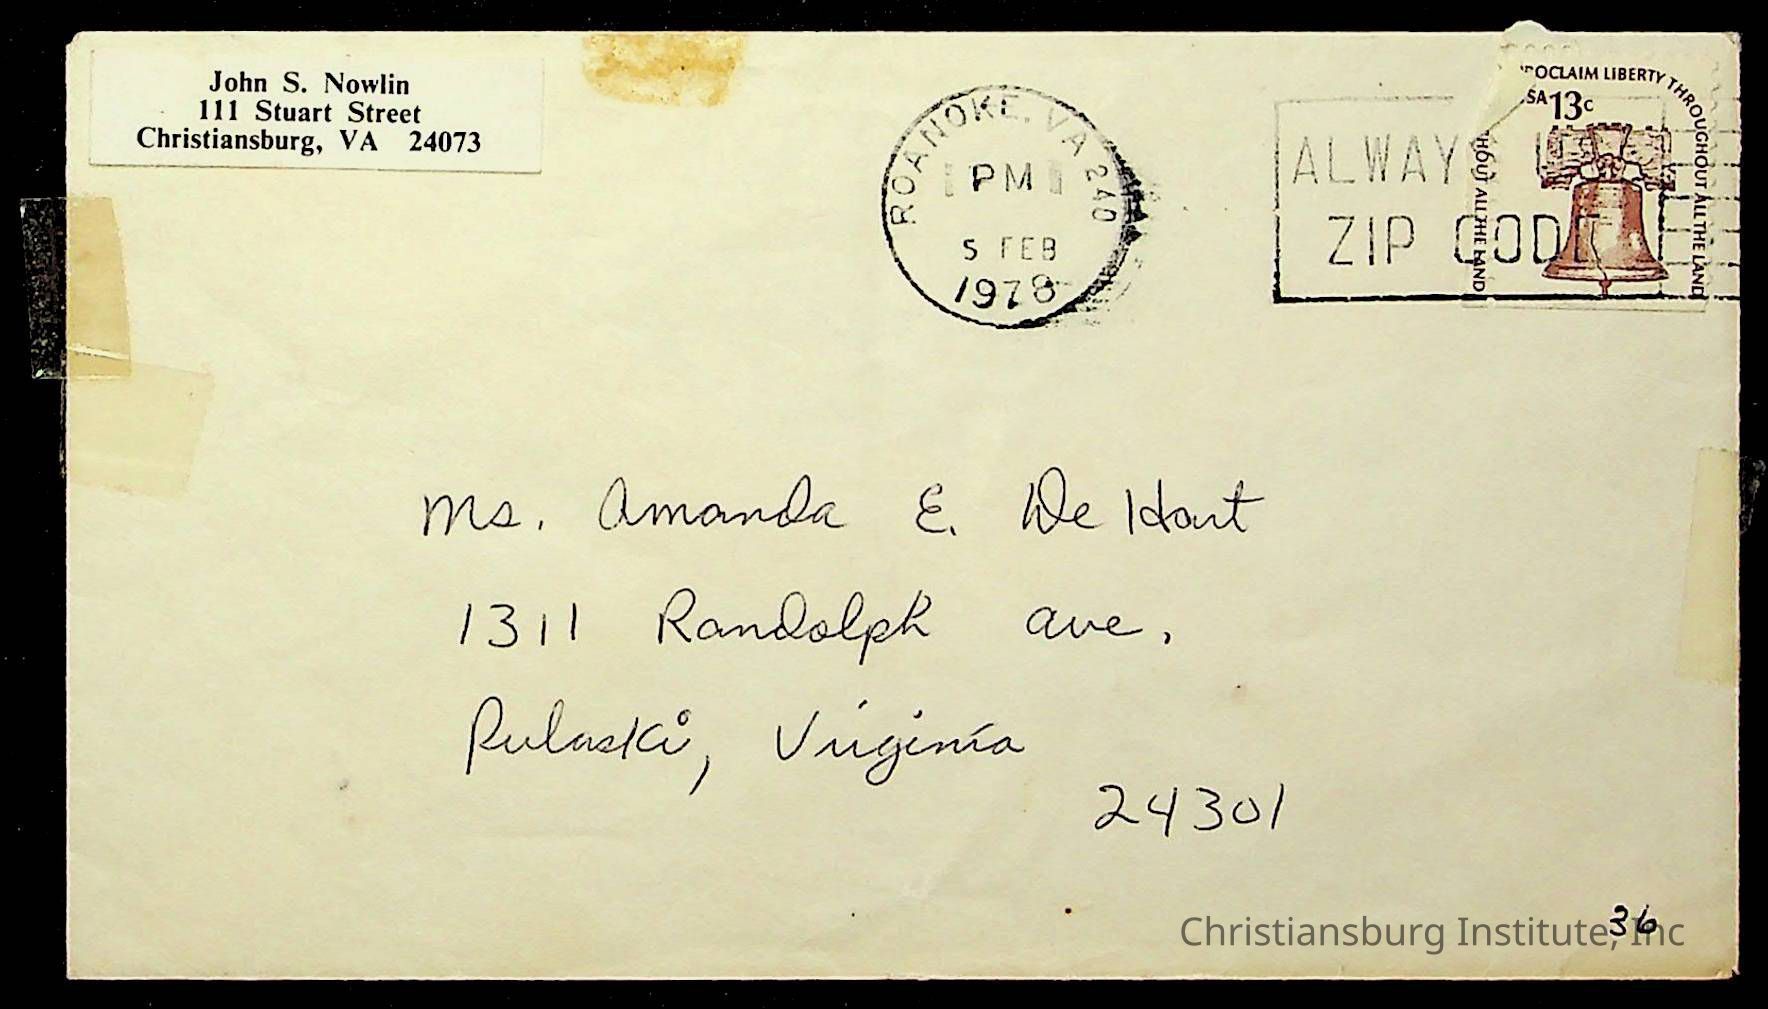 John S. Nowlin
111 Stuart Street
Christiansburg, VA 24073
ROANOKE, VA 240
PM
5 FEB
1978
ALWAYS USE
ZIP CODE
PROCLAIM LIBERTY THROUGHOUT ALL THE LAND
USA 13c
HOUT ALL THE LAND
Ms. Amanda E. DeHart
1311 Randolph Ave.
Pulaski, Virginia
24301
36
Christiansburg Institute, Inc